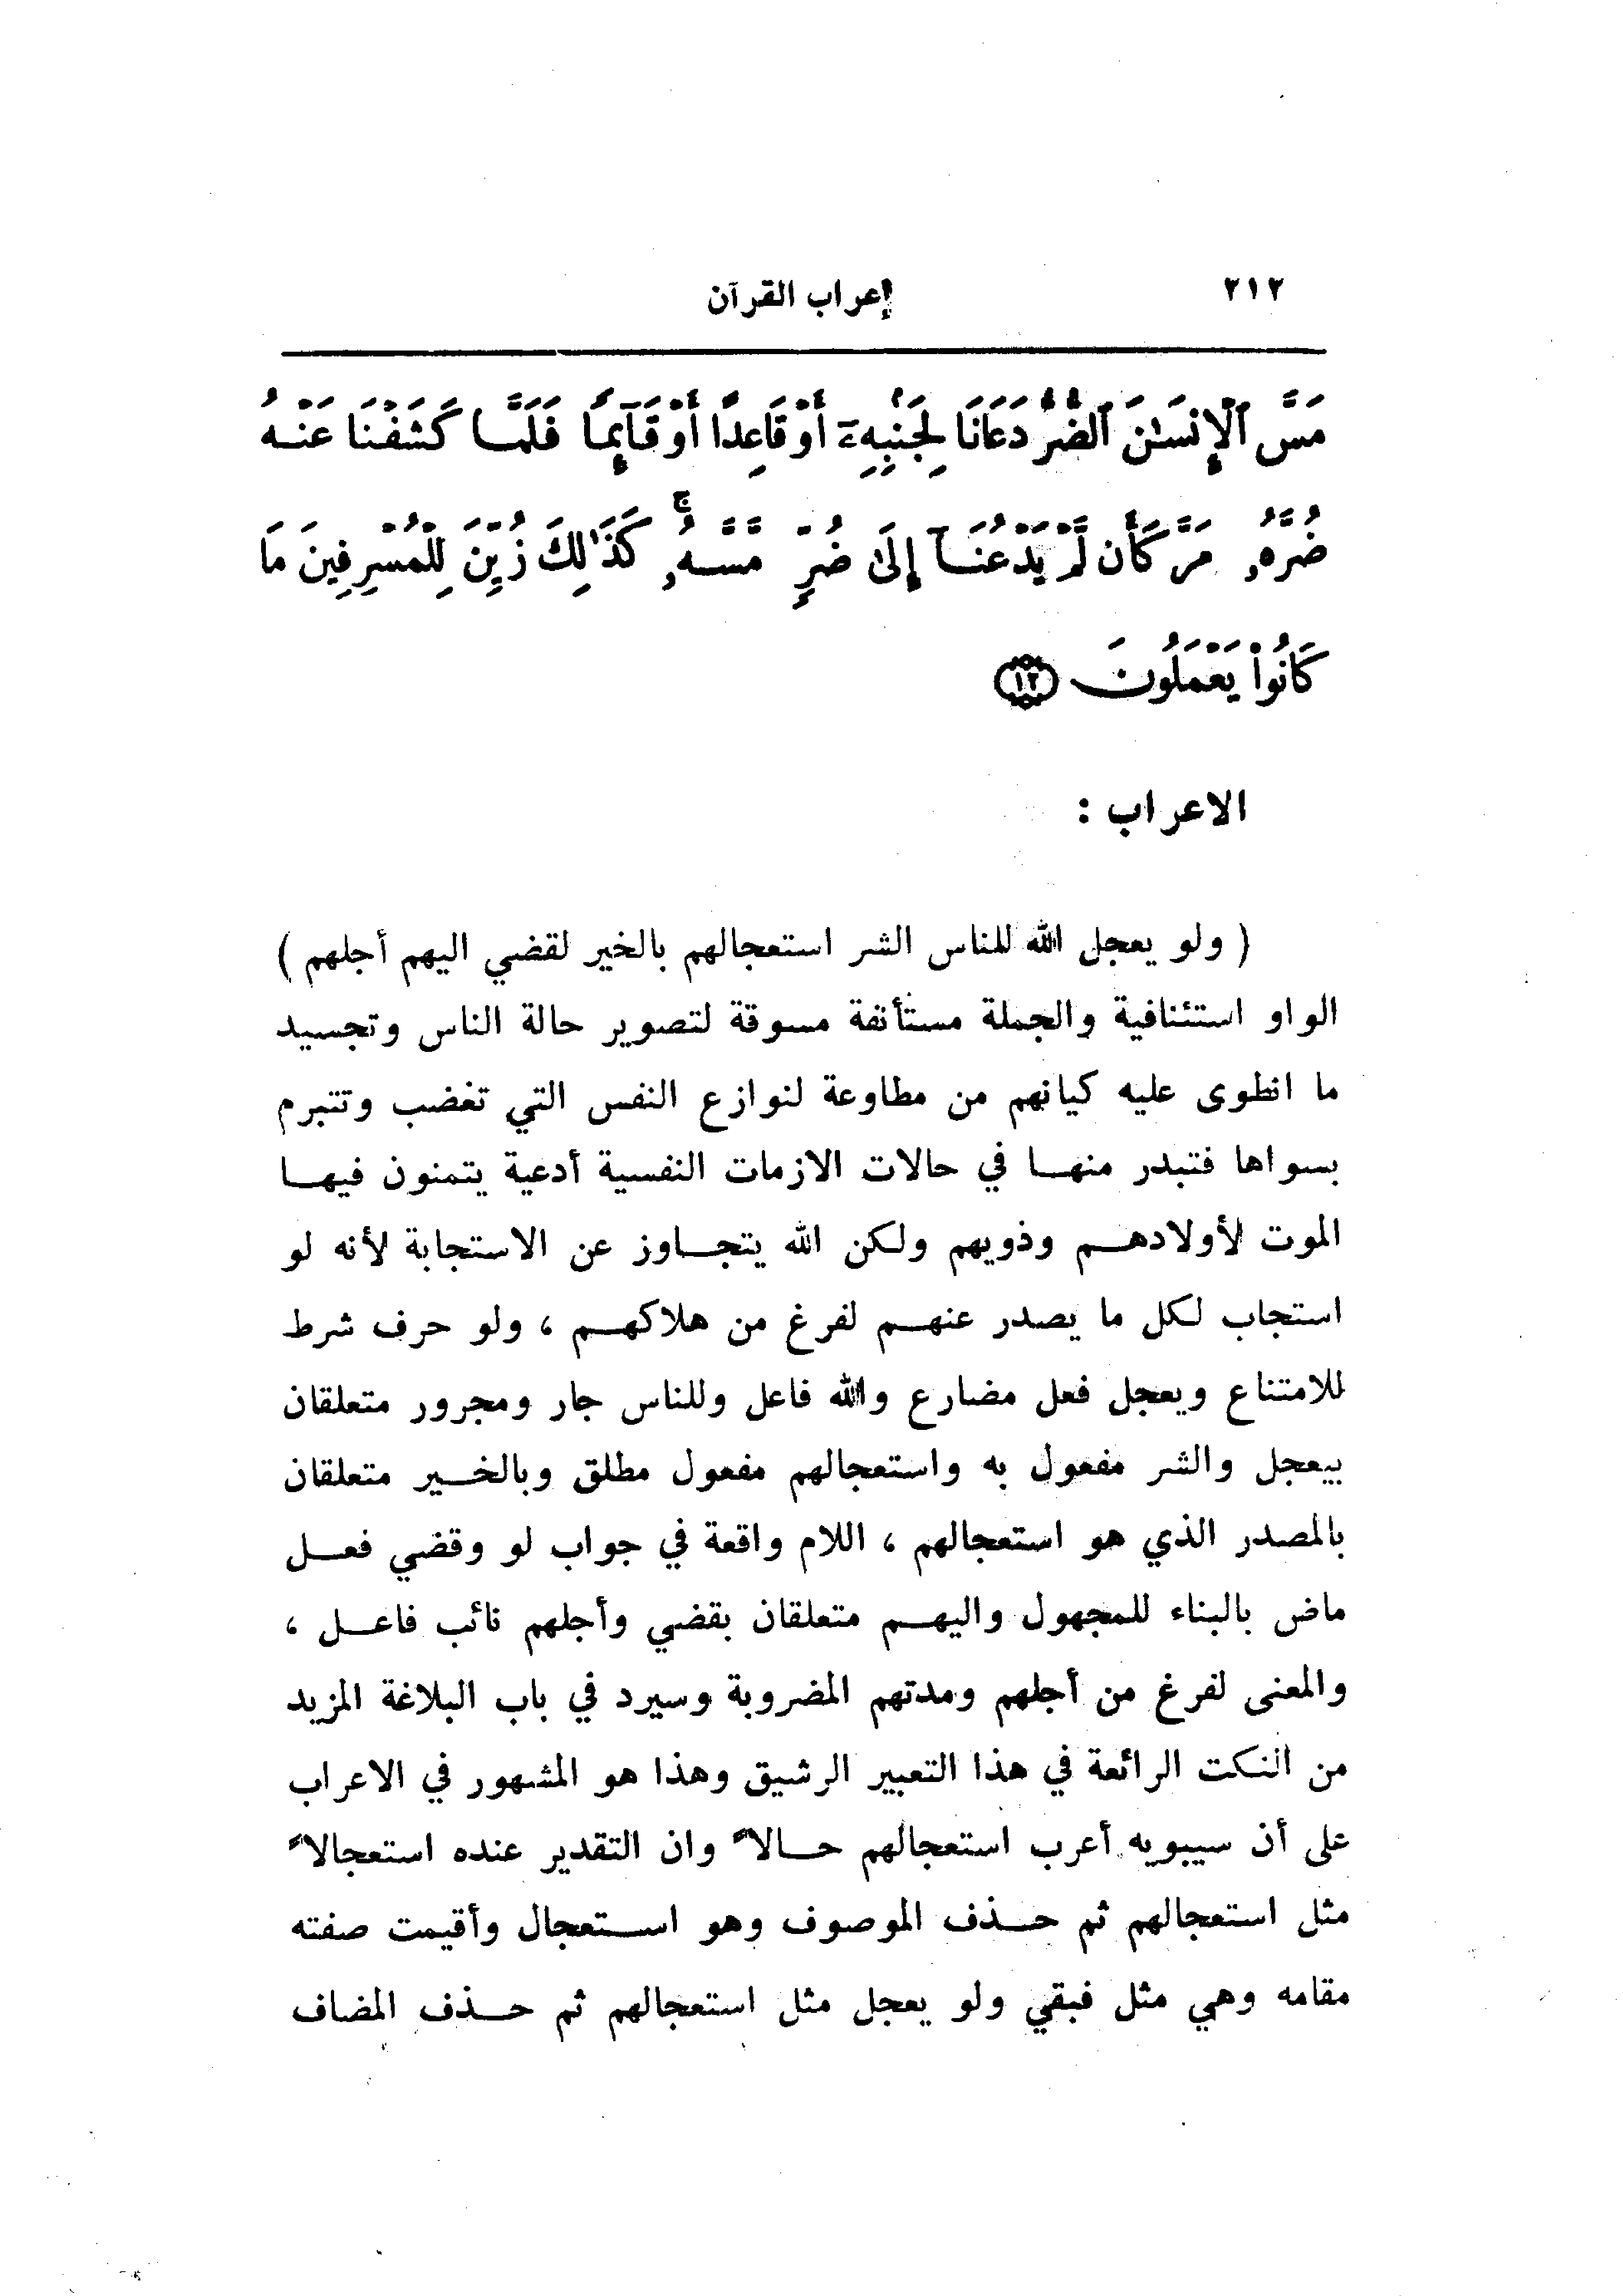 ٢١٢
إعراب القرآن
مَسَّ ٱلْإِنسَٰنَ ٱلضُّرُّ دَعَانَا لِجَنۢبِهِۦٓ أَوْ قَاعِدًا أَوْ قَآئِمًا فَلَمَّا كَشَفْنَا عَنْهُ
ضُرَّهُۥ مَرَّ كَأَن لَّمْ يَدْعُنَآ إِلَىٰ ضُرٍّ مَّسَّهُۥۚ كَذَٰلِكَ زُيِّنَ لِلْمُسْرِفِينَ مَا
كَانُوا۟ يَعْمَلُونَ ١٢
الاعراب :
( ولو يعجل الله للناس الشر استعجالهم بالخير لقضي اليهم أجلهم )
الواو استئنافية والجملة مستأنفة مسوقة لتصوير حالة الناس وتجسيد
ما انطوى عليه كيانهم من مطاوعة لنوازع النفس التي تغضب وتتبرم
بسواها فتبدر منهـا في حالات الازمات النفسية أدعية يتمنون فيهـا
الموت لأولادهـم وذويهم ولكن الله يتجـاوز عن الاستجابة لأنه لو
استجاب لكل ما يصدر عنهـم لفرغ من هلاكهـم ، ولو حرف شرط
للامتناع ويعجل فعل مضارع والله فاعل وللناس جار ومجرور متعلقان
بيعجل والشر مفعول به واستعجالهم مفعول مطلق وبالخـير متعلقان
بالمصدر الذي هو استعجالهم ، اللام واقعة في جواب لو وقضي فعـل
ماض بالبناء للمجهول واليهـم متعلقان بقضي وأجلهم نائب فاعـل ،
والمعنى لفرغ من أجلهم ومدتهم المضروبة وسيرد في باب البلاغة المزيد
من النكت الرائعة في هذا التعبير الرشيق وهذا هو المشهور في الاعراب
على أن سيبويه أعرب استعجالهم حـالاً وان التقدير عنده استعجالاً
مثل استعجالهم ثم حـذف الموصوف وهو اسـتعجال وأقيمت صفته
مقامه وهي مثل فبقي ولو يعجل مثل استعجالهم ثم حـذف المضاف